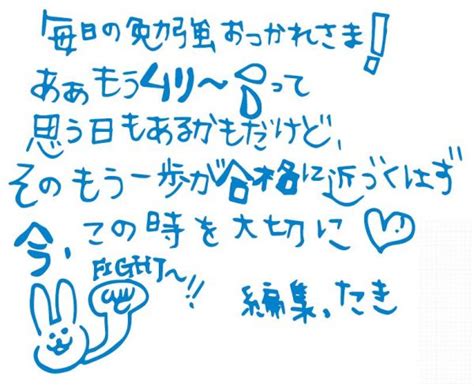 毎日の勉強おつかれさま!
ああもうムリ〜って
思う日もあるかもだけど、
そのもう一歩が合格に近づくはず
今、この時を大切に♡
FIGHT〜!!
編集。たき